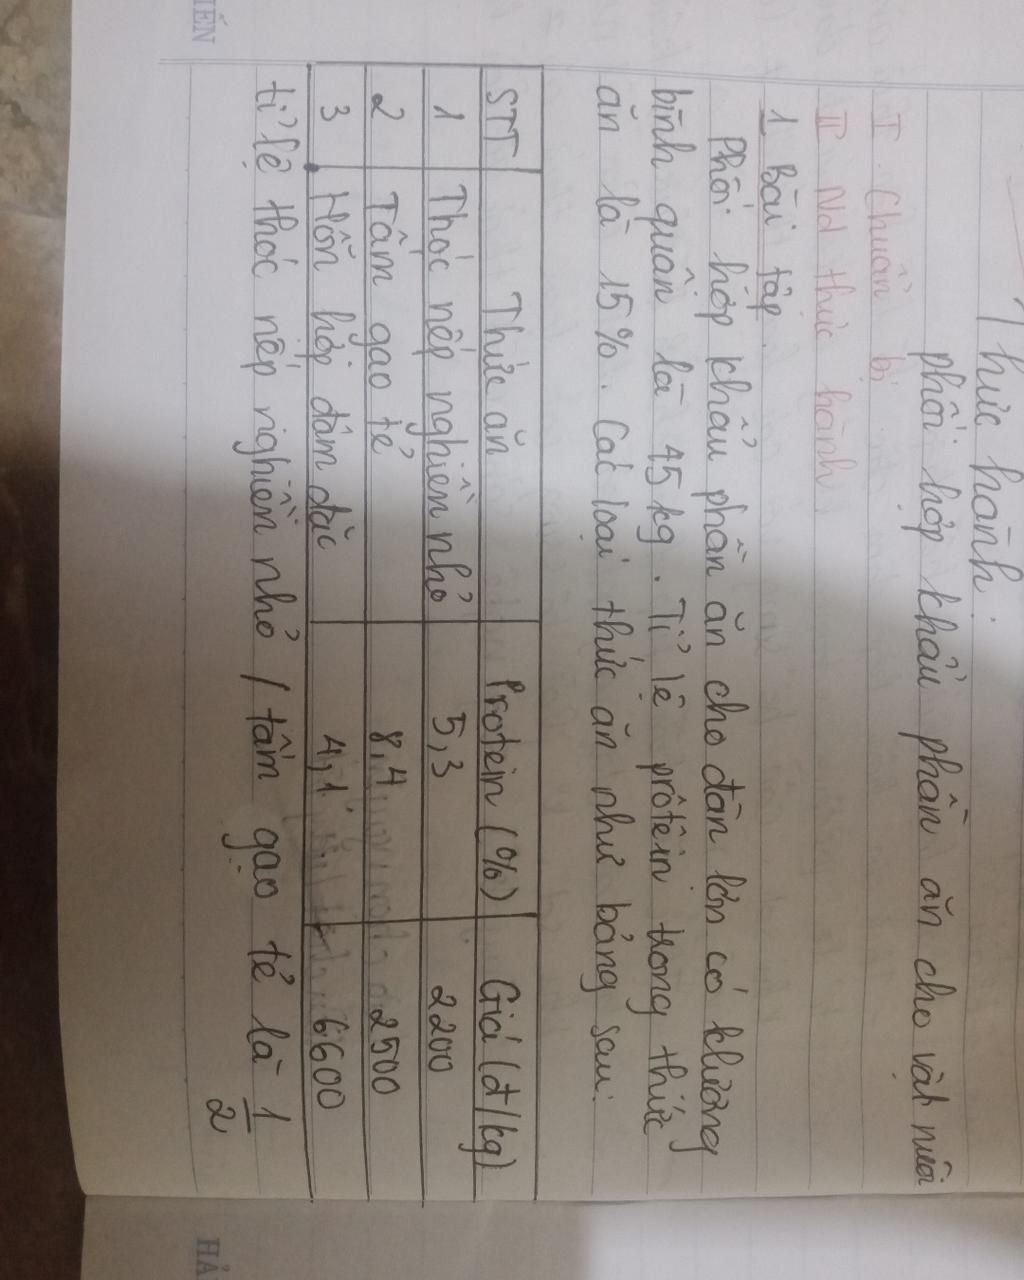 Thực hành:
phối hợp khẩu phần ăn cho vật nuôi
I. Chuẩn bị
II Nd thực hành
1 Bài tập
Phối hợp khẩu phần ăn cho đàn lợn có klượng
bình quân là 45kg. Tỉ lệ prôtêin trong thức
ăn là 15%. Các loại thức ăn như bảng sau:
STT Thức ăn Protein (%) Giá (đ/kg)
1 Thóc nếp nghiền nhỏ 5,3 2200
2 Tấm gạo tẻ 8,4 2500
3 Hỗn hợp đậm đặc 4,1 6600
tỉ lệ thóc nếp nghiền nhỏ / tấm gạo tẻ là 1/2
HẢ